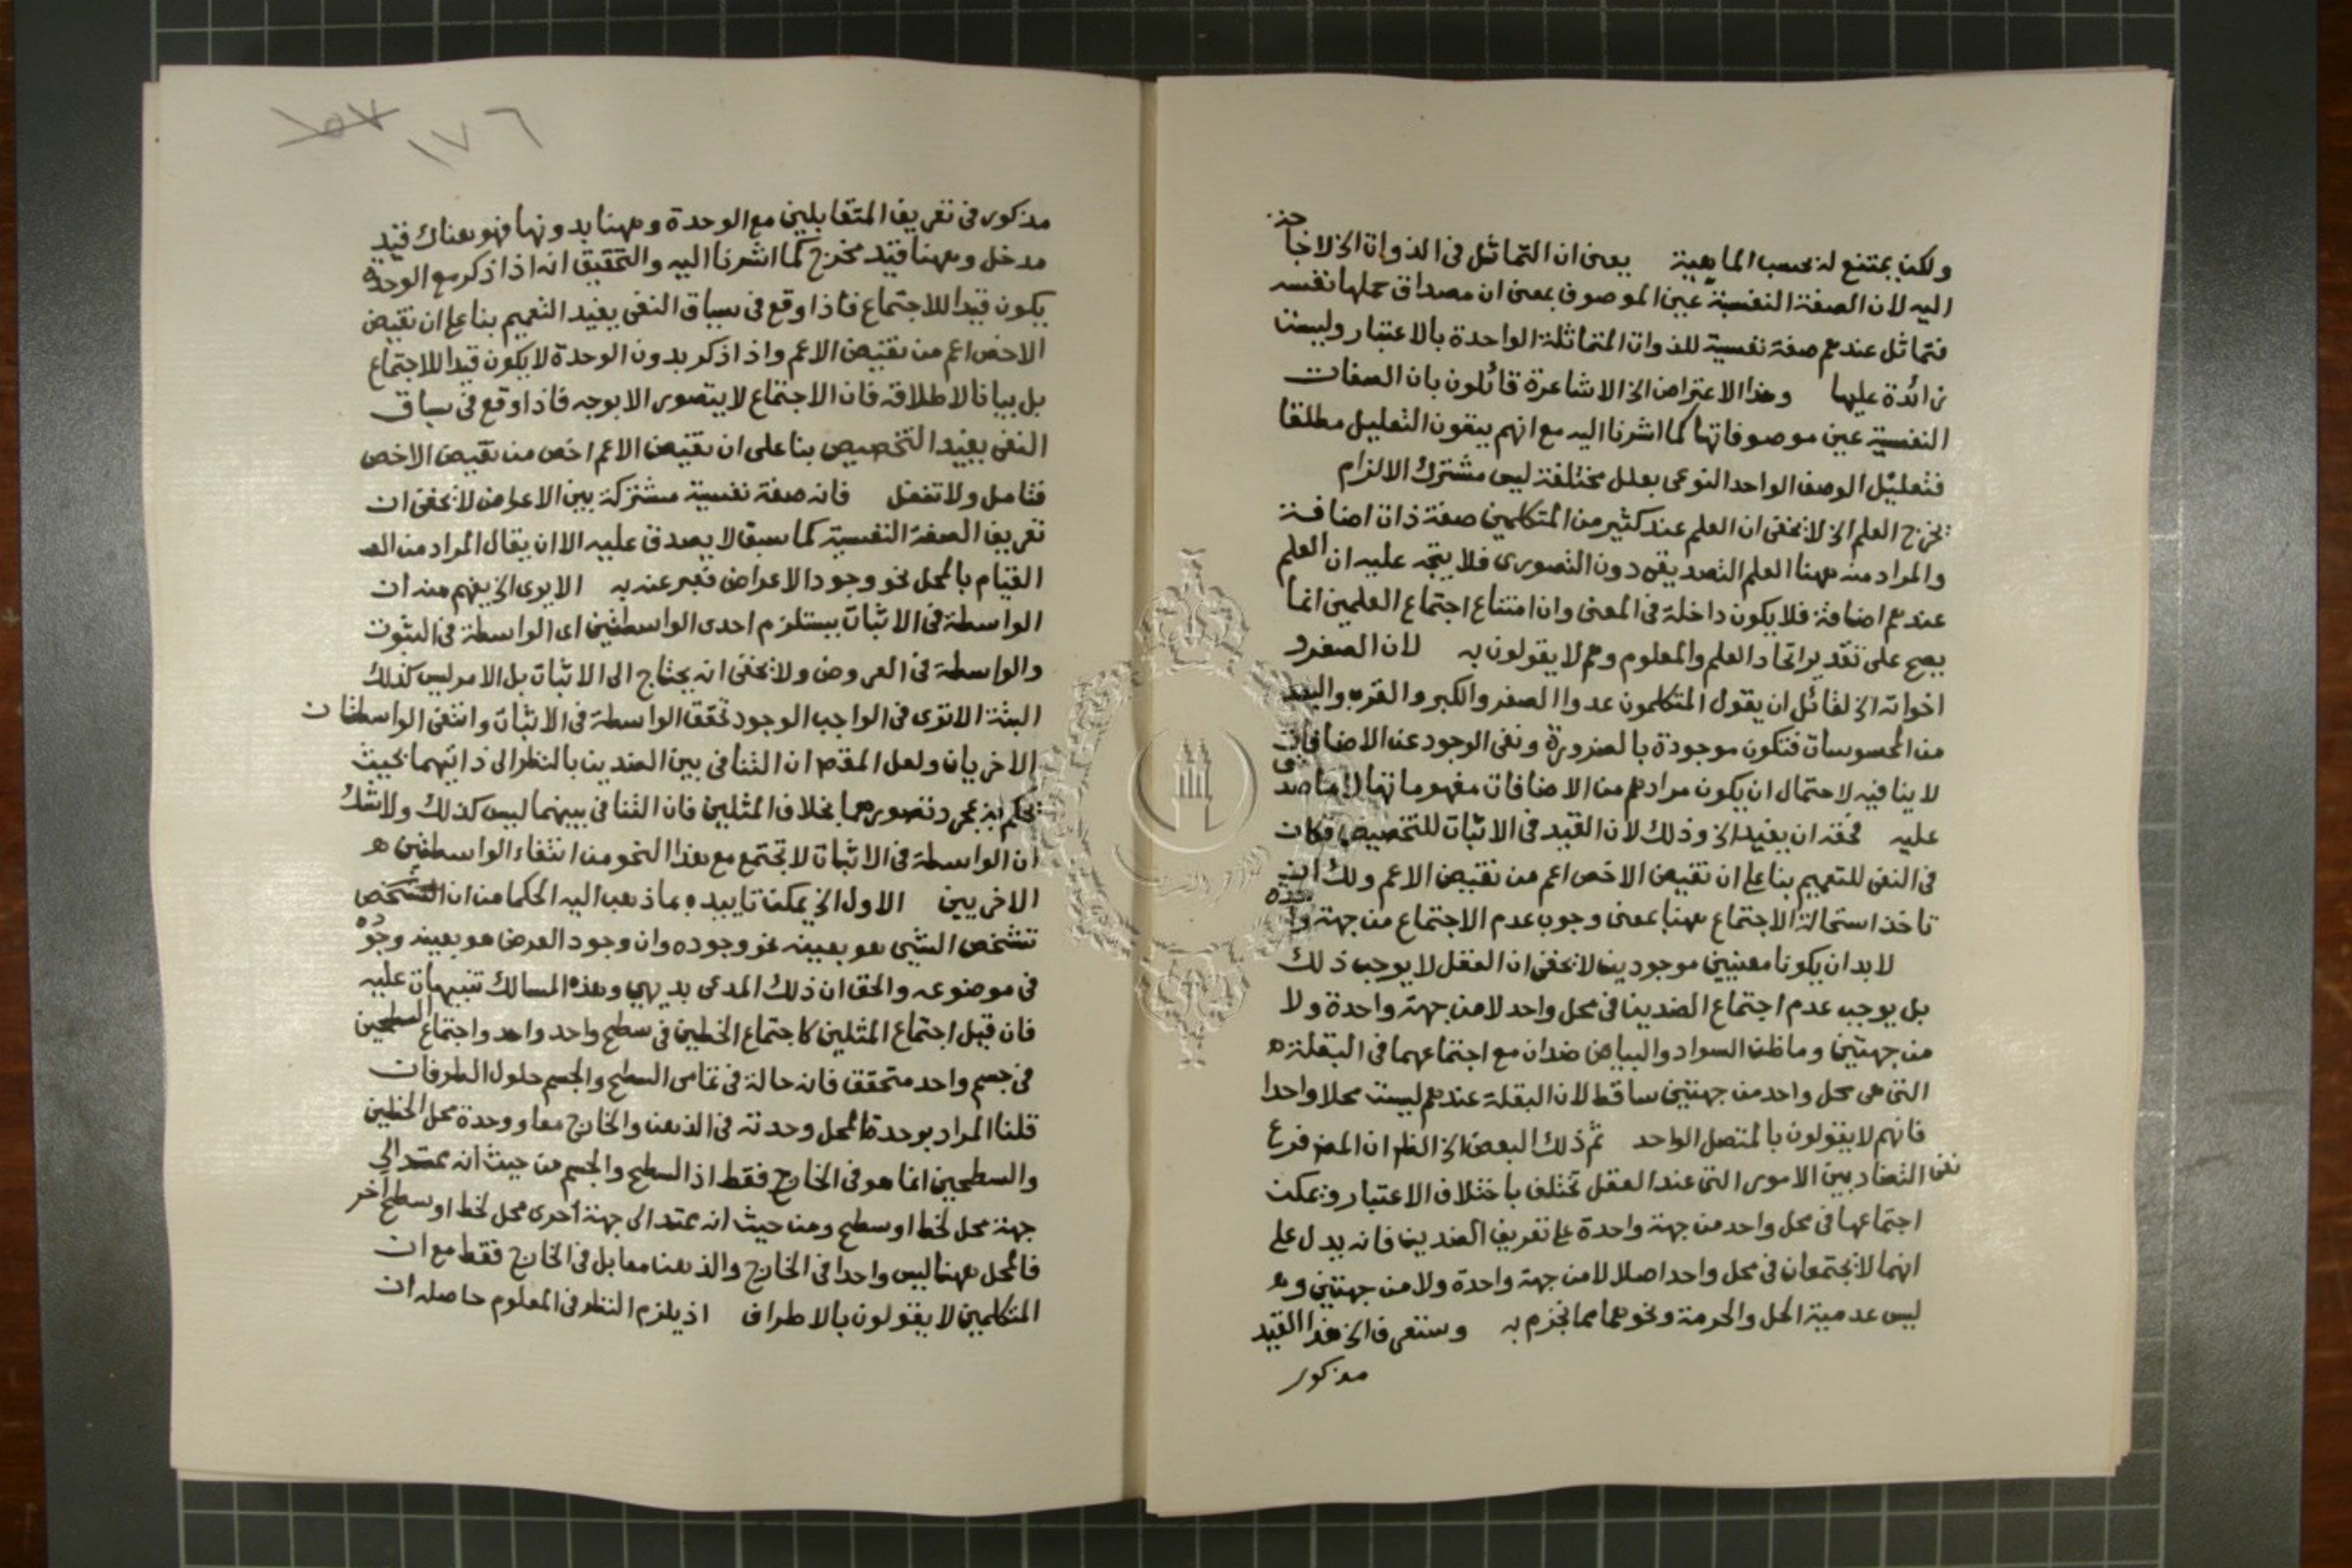 ولكن يمتنع له بحسب الماهية يعنى ان التماثل فى الذوات الخ لاخا جز
اليه لان الصفة النفسية عين الموصوف بمعنى ان مصداق حملها نفسه
فتماثل عندهم صفة نفسية للذوات المتماثلة الواحدة بالاعتبار وليست
زائدة عليها وهذا الاعتراض الخ الاشاعرة قائلون بان الصفات
النفسية عين موصوفاتها كما اشرنا اليه مع انهم ينفون التعليل مطلقا
فتعليل الوصف الواحد النوعى بعلل مختلفة ليس مشترك الالزام
يخرج العلم الخ لا يخفى ان العلم عند كثير من المتكلمين صفة ذات اضافة
والمراد منه ههنا العلم التصديقى دون التصورى فلا يتجه عليه ان العلم
عندهم اضافة فلا يكون داخلة فى المعنى وان امتناع اجتماع العلمين انما
يصح على تقدير اتحاد العلم والمعلوم وهم لا يقولون به لان الصغر و
اخواته الخ لقائل ان يقول المتكلمون عدوا الصغر والكبر والقرب والبعد
من المحسوسات فتكون موجودة بالضرورة ونفى الوجود عن الاضافات
لا ينافيه لاحتمال ان يكون مرادهم من الاضافات مفهوماتها لا ما صدقى
عليه فحقه ان يفيد الخ وذلك لان القيد فى الاثبات للتخصيص فكان
فى النفى للتعميم بنا على ان نقيض الاخص اعم من نقيض الاعم ولك ان
تاخذ استحالة الاجتماع ههنا بمعنى وجوب عدم الاجتماع من جهة واحدة
لابد ان يكونا معنيين موجودين لا يخفى ان العقل لا يوجب ذلك
بل يوجب عدم اجتماع الضدين فى محل واحد لا من جهة واحدة ولا
من جهتين وما ظن السواد والبياض ضدان مع اجتماعهما فى البقلة
التى هى محل واحد من جهتين ساقط لان البقلة عندهم ليست محلا واحدا
فانهم لا يقولون بالمتصل الواحد ثم ذلك البعض الخ الظ ان المض فرع
نفى التضاد بين الامور التى عند العقل تختلف باختلاف الاعتبار ويمكن
اجتماعها فى محل واحد من جهة واحدة على تعريف الضدين فانه يدل على
انهما لا يجتمعان فى محل واحد اصلا لا من جهة واحدة ولا من جهتين وهو
ليس عدمية الحل والحرمة ونحوهما مما نجزم به وستعرف الخ هذا القيد
مذكور
١٥٧
١٧٦
مذكور فى تعريف المتقابلين مع الوحدة وههنا بدونها فهو هناك قيد
مدخل وههنا قيد مخرج كما اشرنا اليه والتحقيق انه اذا ذكر مع الوحدة
يكون قيدا للاجتماع فاذا وقع فى سياق النفى يفيد التعميم بنا على ان نقيض
الاخص اعم من نقيض الاعم واذا ذكر بدون الوحدة لا يكون قيدا للاجتماع
بل بيانا لاطلاقه فان الاجتماع لا يتصور الا بوجه فاذا وقع فى سياق
النفى يفيد التخصيص بنا على ان نقيض الاعم اخص من نقيض الاخص
فتامل ولا تغفل فانه صفة نفسية مشتركة بين الاعراض لا يخفى ان
تعريف الصفة النفسية كما سبق لا يصدق عليه الا ان يقال المراد من الص
القيام بالمحل نحو وجود الاعراض فعبر عنه به الا يرى الخ يفهم منه ان
الواسطة فى الاثبات يستلزم احدى الواسطتين اى الواسطة فى الثبوت
والواسطة فى العروض ولا يخفى انه يحتاج الى الاثبات بل الامر ليس كذلك
البتة الا ترى فى الواجب الوجود تحقق الواسطة فى الاثبات وانتفى الواسطتان
الاخريان ولعل المقص ان التنافى بين الضدين بالنظر الى ذاتيهما بحيث
يحكم به بمجرد تصورهما بخلاف المثلين فان التنافى بينهما ليس كذلك ولا شك
ان الواسطة فى الاثبات لا تجتمع مع هذا النحو من انتفاء الواسطتين
الاخريين الاول الخ يمكن تاييده بما ذهب اليه الحكما من ان التشخص
تشخص الشيى هو بعينه نحو وجوده وان وجود العرض هو بعينه وجوده
فى موضوعه والحق ان ذلك المدعى بديهى وهذه المسالك تنبيهات عليه
فان قيل اجتماع المثلين كاجتماع الخطين فى سطح واحد واجتماع السطحين
فى جسم واحد متحقق فانه حالة فى تماس السطح والجسم حلول الطرفان
قلنا المراد بوحدة المحل وحدته فى الذهن والخارج معا ووحدة محل الخطين
والسطحين انما هو فى الخارج فقط اذ السطح والجسم من حيث انه يمتد الى
جهة محل لخط او سطح ومن حيث انه يمتد الى جهة اخرى محل لخط او سطح آخر
فالمحل ههنا ليس واحدا فى الخارج والذهن معا بل فى الخارج فقط مع ان
المتكلمين لا يقولون بالاطراف اذ يلزم النظر فى المعلوم حاصله ان